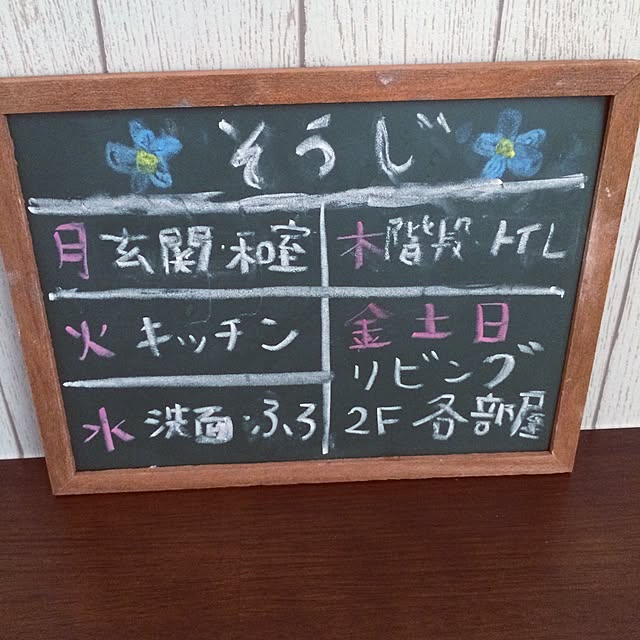 そうじ
月 玄関・和室
火 キッチン
水 洗面・ふろ
木 階段・トイレ
金 土 日
リビング
2F 各部屋